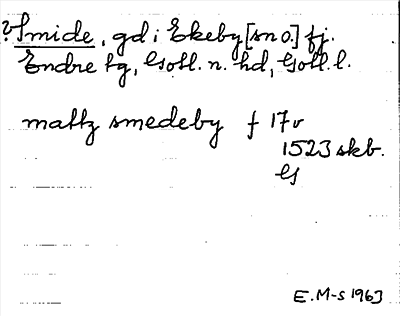 ?Smide, gd i Ekeby [sn o.] fj.
Endre tg, Gotl. n. hd, Gotl. l.
mattz smedeby f 17v
1523 skb.
G
E. M-s 1963